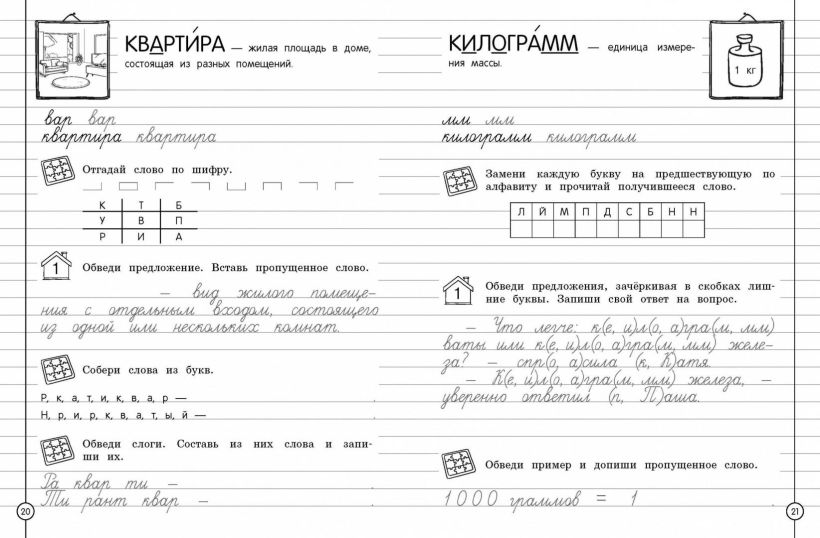 КВАРТИ́РА — жилая площадь в доме,
состоящая из разных помещений.
вар вар
квартира квартира
Отгадай слово по шифру.
К Т Б
У В П
Р И А
1
Обведи предложение. Вставь пропущенное слово.
— вид жилого помеще-
ния с отдельным входом, состоящего
из одной или нескольких комнат.
Собери слова из букв.
Р, к, а, т, и, к, в, а, р —
Н, р, и, р, к, в, а, т, ы, й —
Обведи слоги. Составь из них слова и запи-
ши их.
Ра квар ти —
Ти рант квар —
20
КИЛОГРА́ММ — единица измере-
ния массы.
1 кг
мм мм
килограмм килограмм
Замени каждую букву на предшествующую по
алфавиту и прочитай получившееся слово.
Л Й М П Д С Б Н Н
1
Обведи предложения, зачёркивая в скобках лиш-
ние буквы. Запиши свой ответ на вопрос.
— Что легче: к(е, и)л(о, а)гра(м, мм)
ваты или к(е, и)л(о, а)гра(м, мм) желе-
за? — спр(о, а)сила (к, К)атя.
— К(е, и)л(о, а)гра(м, мм) железа, —
уверенно ответил (п, П)аша.
Обведи пример и допиши пропущенное слово.
1000 граммов = 1
21